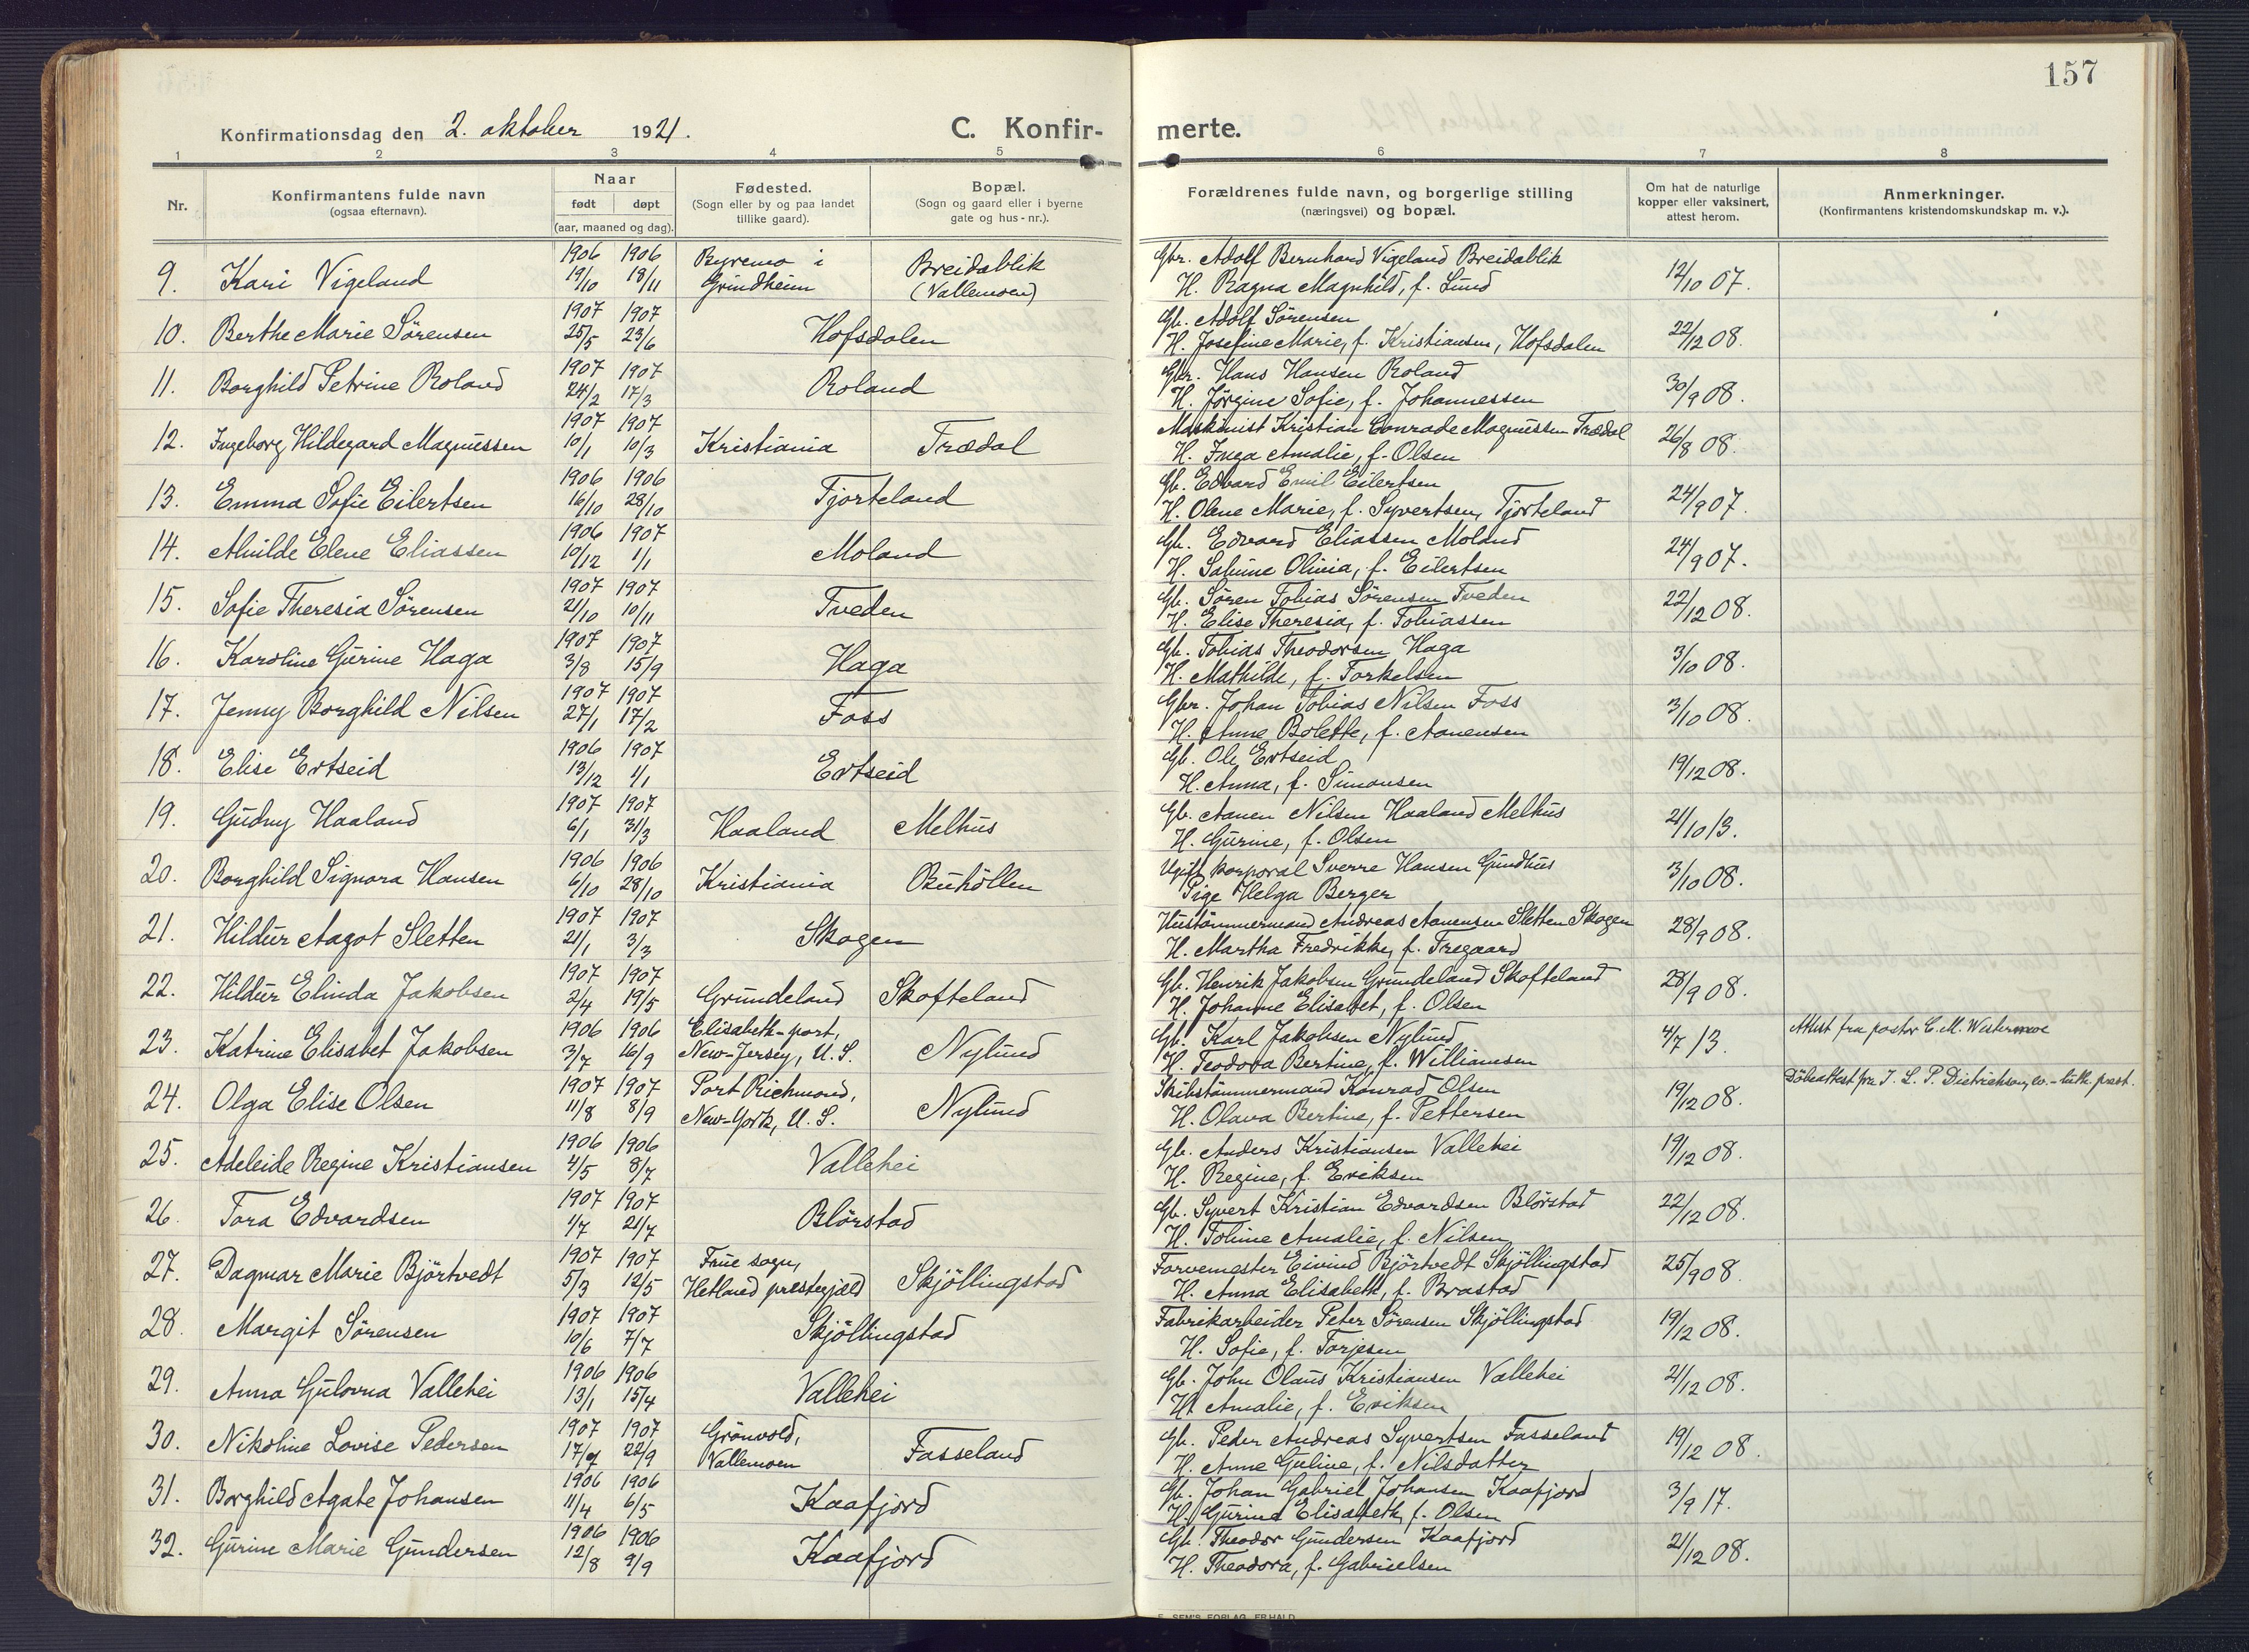 157
Konfirmationsdag den 2. oktober 1921.
C. Konfir-
merte.
1 2 3 4 5 6 7 8
Nr.
Konfirmantens fulde navn
(ogsaa efternavn).
Naar
født døpt
(aar, maaned og dag).
Fødested.
(Sogn eller by og paa landet
tillike gaard).
Bopæl.
(Sogn og gaard eller i byerne
gate og hus-nr.).
Forældrenes fulde navn, og borgerlige stilling
(næringsvei) og bopæl.
Om hat de naturlige
kopper eller vaksinert,
attest herom.
Anmerkninger.
(Konfirmantens kristendomskundskap m. v.).
1906 1906 Byremo i Gbr. Adolf Bernhard Vigeland Breidablik
9. Kari Vigeland 19/10 18/11 Grindheim Breidablik (Vallemoen) H. Ragna Magnhild, f. Lund 12/10 07.
1907 1907 Gb. Adolf Sörensen
10. Berthe Marie Sörensen 25/5 23/6 Hofsdalen H. Josefine Marie, f. Kristiansen, Hofsdalen 22/12 08.
1907 1907 Gbr. Hans Hansen Roland
11. Borghild Petrine Roland 24/2 17/3 Roland H. Jörgine Sofie, f. Johannessen 30/9 08.
1907 1907 Maskinist Kristian Conrade Magnussen Trædal
12. Ingeborg Hildegard Magnussen 10/1 10/3 Kristiania Trædal H. Inga Amalie, f. Olsen 26/8 08.
1906 1906 Gb. Edvard Emil Eilertsen
13. Emma Sofie Eilertsen 16/10 28/10 Tjorteland H. Olene Marie, f. Syvertsen, Tjorteland 24/9 07.
1906 1907 Gb. Edvard Eliassen Moland
14. Alvilde Elene Eliassen 10/12 1/1 Moland H. Sabine Olivia, f. Eilertsen 24/9 07.
1907 1907 Gb. Sören Tobias Sörensen Tveden
15. Sofie Theresia Sörensen 21/10 10/11 Tveden H. Elise Theresia, f. Tobiassen 22/12 08.
1907 1907 Gb. Tobias Theodorsen Haga
16. Karoline Gurine Haga 3/8 15/9 Haga H. Mathilde, f. Torkelsen 3/10 08.
1907 1907 Gbr. Johan Tobias Nilsen Foss
17. Jenny Borghild Nilsen 27/1 17/2 Foss H. Anne Bolette, f. Aanensen 3/10 08.
1906 1907 Gb. Ole Ertseid
18. Elise Ertseid 13/12 1/1 Ertseid H. Anna, f. Simonsen 19/12 08.
1907 1907 Gb. Aanen Nilsen Haaland Melhus
19. Gudny Haaland 6/1 31/3 Haaland Melhus H. Gurine, f. Olsen 21/10 13.
1906 1906 Ugift korporal Sverre Hansen Gundhus
20. Borghild Signora Hansen 6/10 28/10 Kristiania Buhöllen Pige Helga Berger 3/10 08.
1907 1907 Hustömmermand Andreas Aanensen Sletten Skogen
21. Hildur Aagot Sletten 21/1 3/3 Skogen H. Martha Fredrikke, f. Tregaard 28/9 08.
1907 1907 Gb. Henrik Jakobsen Grundeland Skofteland
22. Hildur Elinda Jakobsen 2/4 19/5 Grundeland Skofteland H. Johanne Elisabet, f. Olsen 28/9 08.
1906 1906 Elisabeth-port, Gb. Karl Jakobsen Nylund Attest fra pastor C. M.
23. Katrine Elisabet Jakobsen 3/7 16/9 New-Jersey, U. S. Nylund H. Teodora Bertine, f. Williamsen 4/7 13.
1907 1907 Port Richmond, Skibstömmermand Konrad Olsen Döbeattest fra I. L. P. Dietrichson, ev.-luth. prest.
24. Olga Elise Olsen 11/8 8/9 New-York, U. S. Nylund H. Olava Bertine, f. Pettersen 19/12 08.
1906 1906 Gb. Anders Kristiansen Vallehei
25. Adeleide Regine Kristiansen 4/5 8/7 Vallehei H. Regine, f. Eriksen 19/12 08.
1907 1907 Gb. Syvert Kristian Edvardsen Blörstad
26. Tora Edvardsen 1/7 21/7 Blörstad H. Toline Amalie, f. Nilsen 22/12 08.
1907 1907 Frue sogn, Farvemester Eivind Björtvedt Skjöllingstad
27. Dagmar Marie Björtvedt 5/3 12/5 Hetland prestegjæld Skjöllingstad H. Anna Elisabeth, f. Brastad 25/9 08.
1907 1907 Fabrikarbeider Peter Sörensen Skjöllingstad
28. Margit Sörensen 10/6 7/7 Skjöllingstad H. Sofie, f. Torjesen 19/12 08.
1906 1906 Gb. John Olaus Kristiansen Vallehei
29. Anna Gulovna Vallehei 13/1 15/4 Vallehei H. Amalie, f. Eriksen 21/12 08.
1907 1907 Grönvold, Gb. Peder Andreas Syvertsen Fasseland
30. Nikoline Lovise Pedersen 17/7 22/9 Vallemoen Fasseland H. Anne Guline, f. Nilsdatter 19/12 08.
1906 1906 Gb. Johan Gabriel Johansen Kaafjord
31. Borghild Agate Johansen 11/4 6/5 Kaafjord H. Gurine Elisabeth, f. Olsen 3/9 17.
1906 1906 Gb. Theodor Gundersen Kaafjord
32. Gurine Marie Gundersen 12/8 9/9 Kaafjord H. Theodora, f. Gabrielsen 21/12 08.
SEM'S FORLAG, FR.HALD